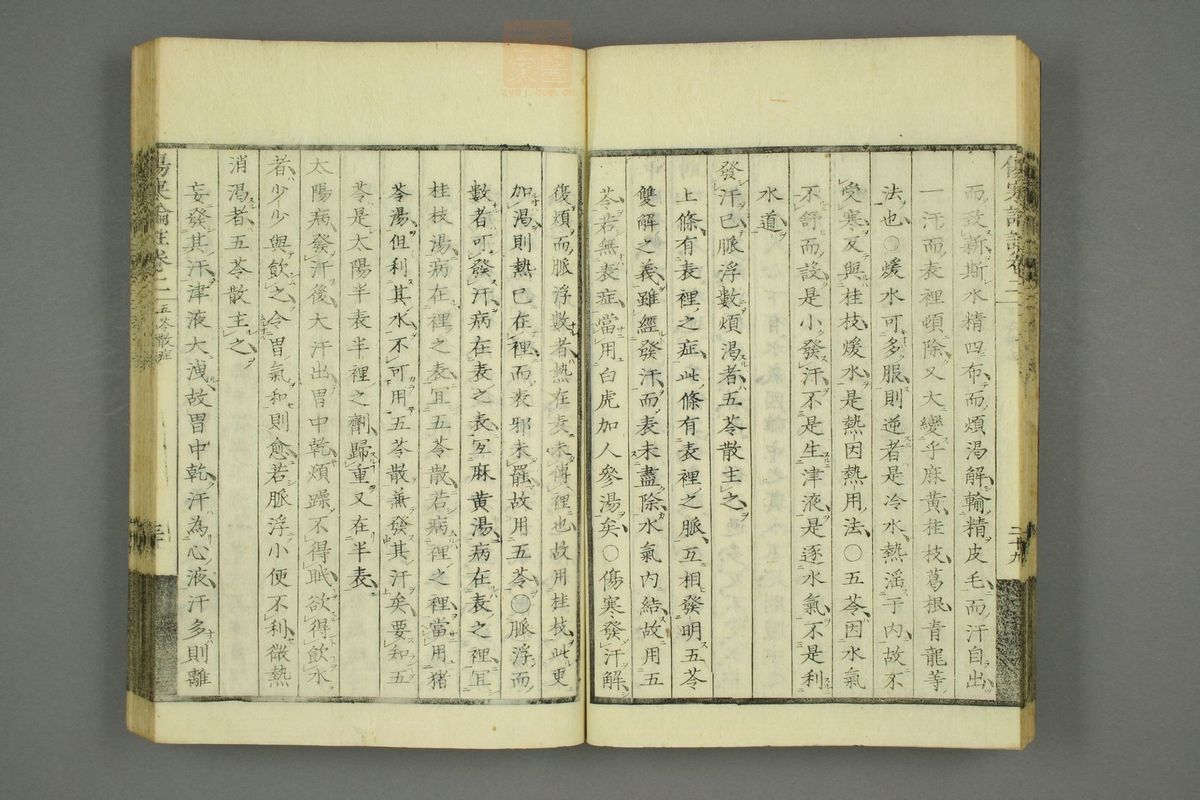 而致新斯水精四布而煩渴解輸精皮毛而汗自出
一汗而表裡頓除又大變乎麻黃桂枝葛根青龍等
法也○煖水可多服則逆者是冷水熱滛于内故不
受寒反與桂枝煖水是熱因熱用法○五苓因水氣
不舒而設是小發汗不是生津液是逐水氣不是利
水道
發汗已脈浮數煩渴者五苓散主之
上條有表裡之症此條有表裡之脈互相發明五苓
雙解之義雖經發汗而表未盡除水氣内結故用五
苓若無表症當用白虎加人參湯矣○傷寒發汗解
復煩而脈浮數者热在表未傳裡也故用桂枝此更
加渴則熱已在裡而表邪未罷故用五苓○脈浮而
數者可發汗病在表之表宜麻黃湯病在表之裡宜
桂枝湯病在裡之表宜五苓散若病裡之裡當用猪
苓湯但利其水不可用五苓散兼發其汗矣要知五
苓是太陽半表半裡之劑歸重又在半表
太陽病發汗後大汗出胃中乾煩躁不得眠欲得飲水
者少少與飲之令胃氣和則愈若脈浮小便不利微熱
消渴者五苓散主之
妄發其汗津液大洩故胃中乾汗為心液汗多則離
傷寒論註卷二
五苓散症
三十
二十九